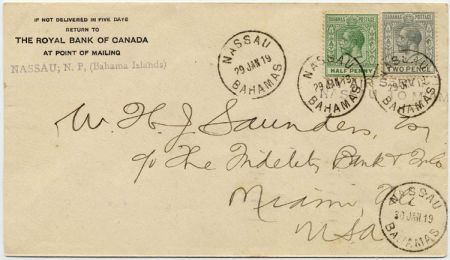 IF NOT DELIVERED IN FIVE DAYS
RETURN TO
THE ROYAL BANK OF CANADA
AT POINT OF MAILING
NASSAU; N. P, (Bahama Islands)
NASSAU
29 JAN 19
BAHAMAS
BAHAMAS POSTAGE
HALF PENNY
NASSAU
29 JAN 19
BAHAMAS
BAHAMAS POSTAGE
TWO PENCE
NASSAU
29 JAN 19
BAHAMAS
NASSAU
W. H. J. Saunders, Esq
c/o The Fidelity Bank & Tr Co
Miami, Fla
USA
NASSAU
30 JAN 19
BAHAMAS